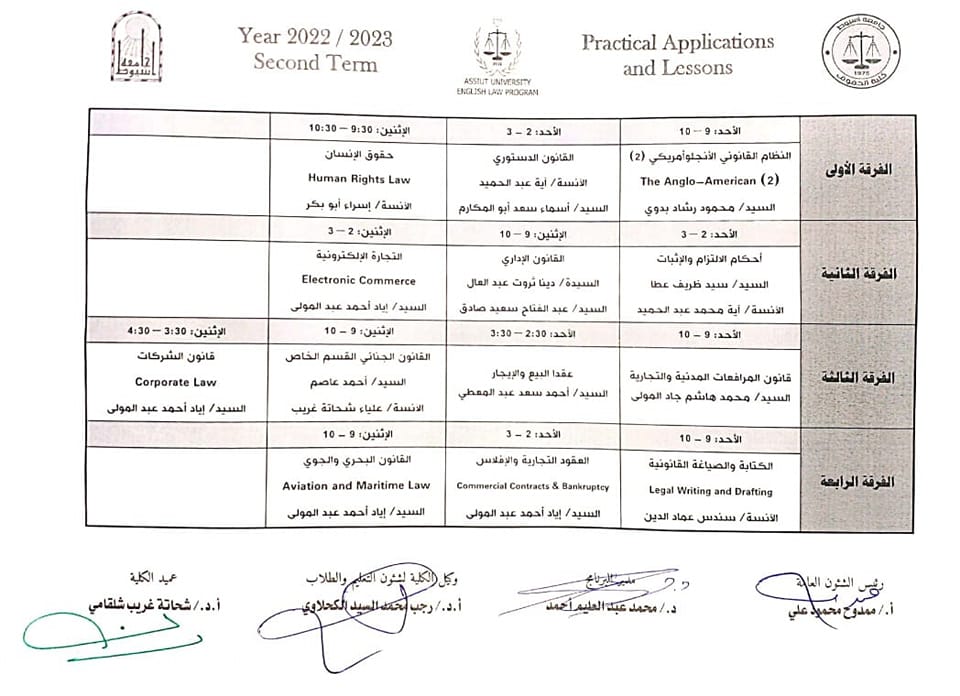 Year 2022 / 2023
Second Term
جامعة
أسيوط
ASSIUT UNIVERSITY
ENGLISH LAW PROGRAM
Practical Applications
and Lessons
جامعة أسيوط
1975
كلية الحقوق
الفرقة الأولى
الأحد: 9 – 10
النظام القانوني الأنجلوأمريكي (2)
The Anglo–American (2)
السيد/ محمود رشاد بدوي
الأحد: 2 – 3
القانون الدستوري
الآنسة/ آية عبد الحميد
السيد/ أسماء سعد أبو المكارم
الإثنين: 9:30 – 10:30
حقوق الإنسان
Human Rights Law
الآنسة/ إسراء أبو بكر
الفرقة الثانية
الأحد: 2 – 3
أحكام الالتزام والإثبات
السيد/ سيد ظريف عطا
الآنسة/ آية محمد عبد الحميد
الإثنين: 9 – 10
القانون الإداري
السيدة/ دينا ثروت عبد العال
السيد/ عبد الفتاح سعيد صادق
الإثنين: 2 – 3
التجارة الإلكترونية
Electronic Commerce
السيد/ إياد أحمد عبد المولى
الفرقة الثالثة
الأحد: 9 – 10
قانون المرافعات المدنية والتجارية
السيد/ محمد هاشم جاد المولى
الأحد: 2:30 – 3:30
عقدا البيع والإيجار
السيد/ أحمد سعد عبد المعطي
الإثنين: 9 – 10
القانون الجنائي القسم الخاص
السيد/ أحمد عاصم
الآنسة/ علياء شحاتة غريب
الإثنين: 3:30 – 4:30
قانون الشركات
Corporate Law
السيد/ إياد أحمد عبد المولى
الفرقة الرابعة
الأحد: 9 – 10
الكتابة والصياغة القانونية
Legal Writing and Drafting
الآنسة/ سندس عماد الدين
الأحد: 2 – 3
العقود التجارية والإفلاس
Commercial Contracts & Bankruptcy
السيد/ إياد أحمد عبد المولى
الإثنين: 9 – 10
القانون البحري والجوي
Aviation and Maritime Law
السيد/ إياد أحمد عبد المولى
رئيس الشئون العامة
أ./ ممدوح محمود علي
مدير البرنامج
د./ محمد عبد العليم أحمد
وكيل الكلية لشئون التعليم والطلاب
أ.د./ رجب محمد السيد الكحلاوي
عميد الكلية
أ.د./ شحاتة غريب شلقامي